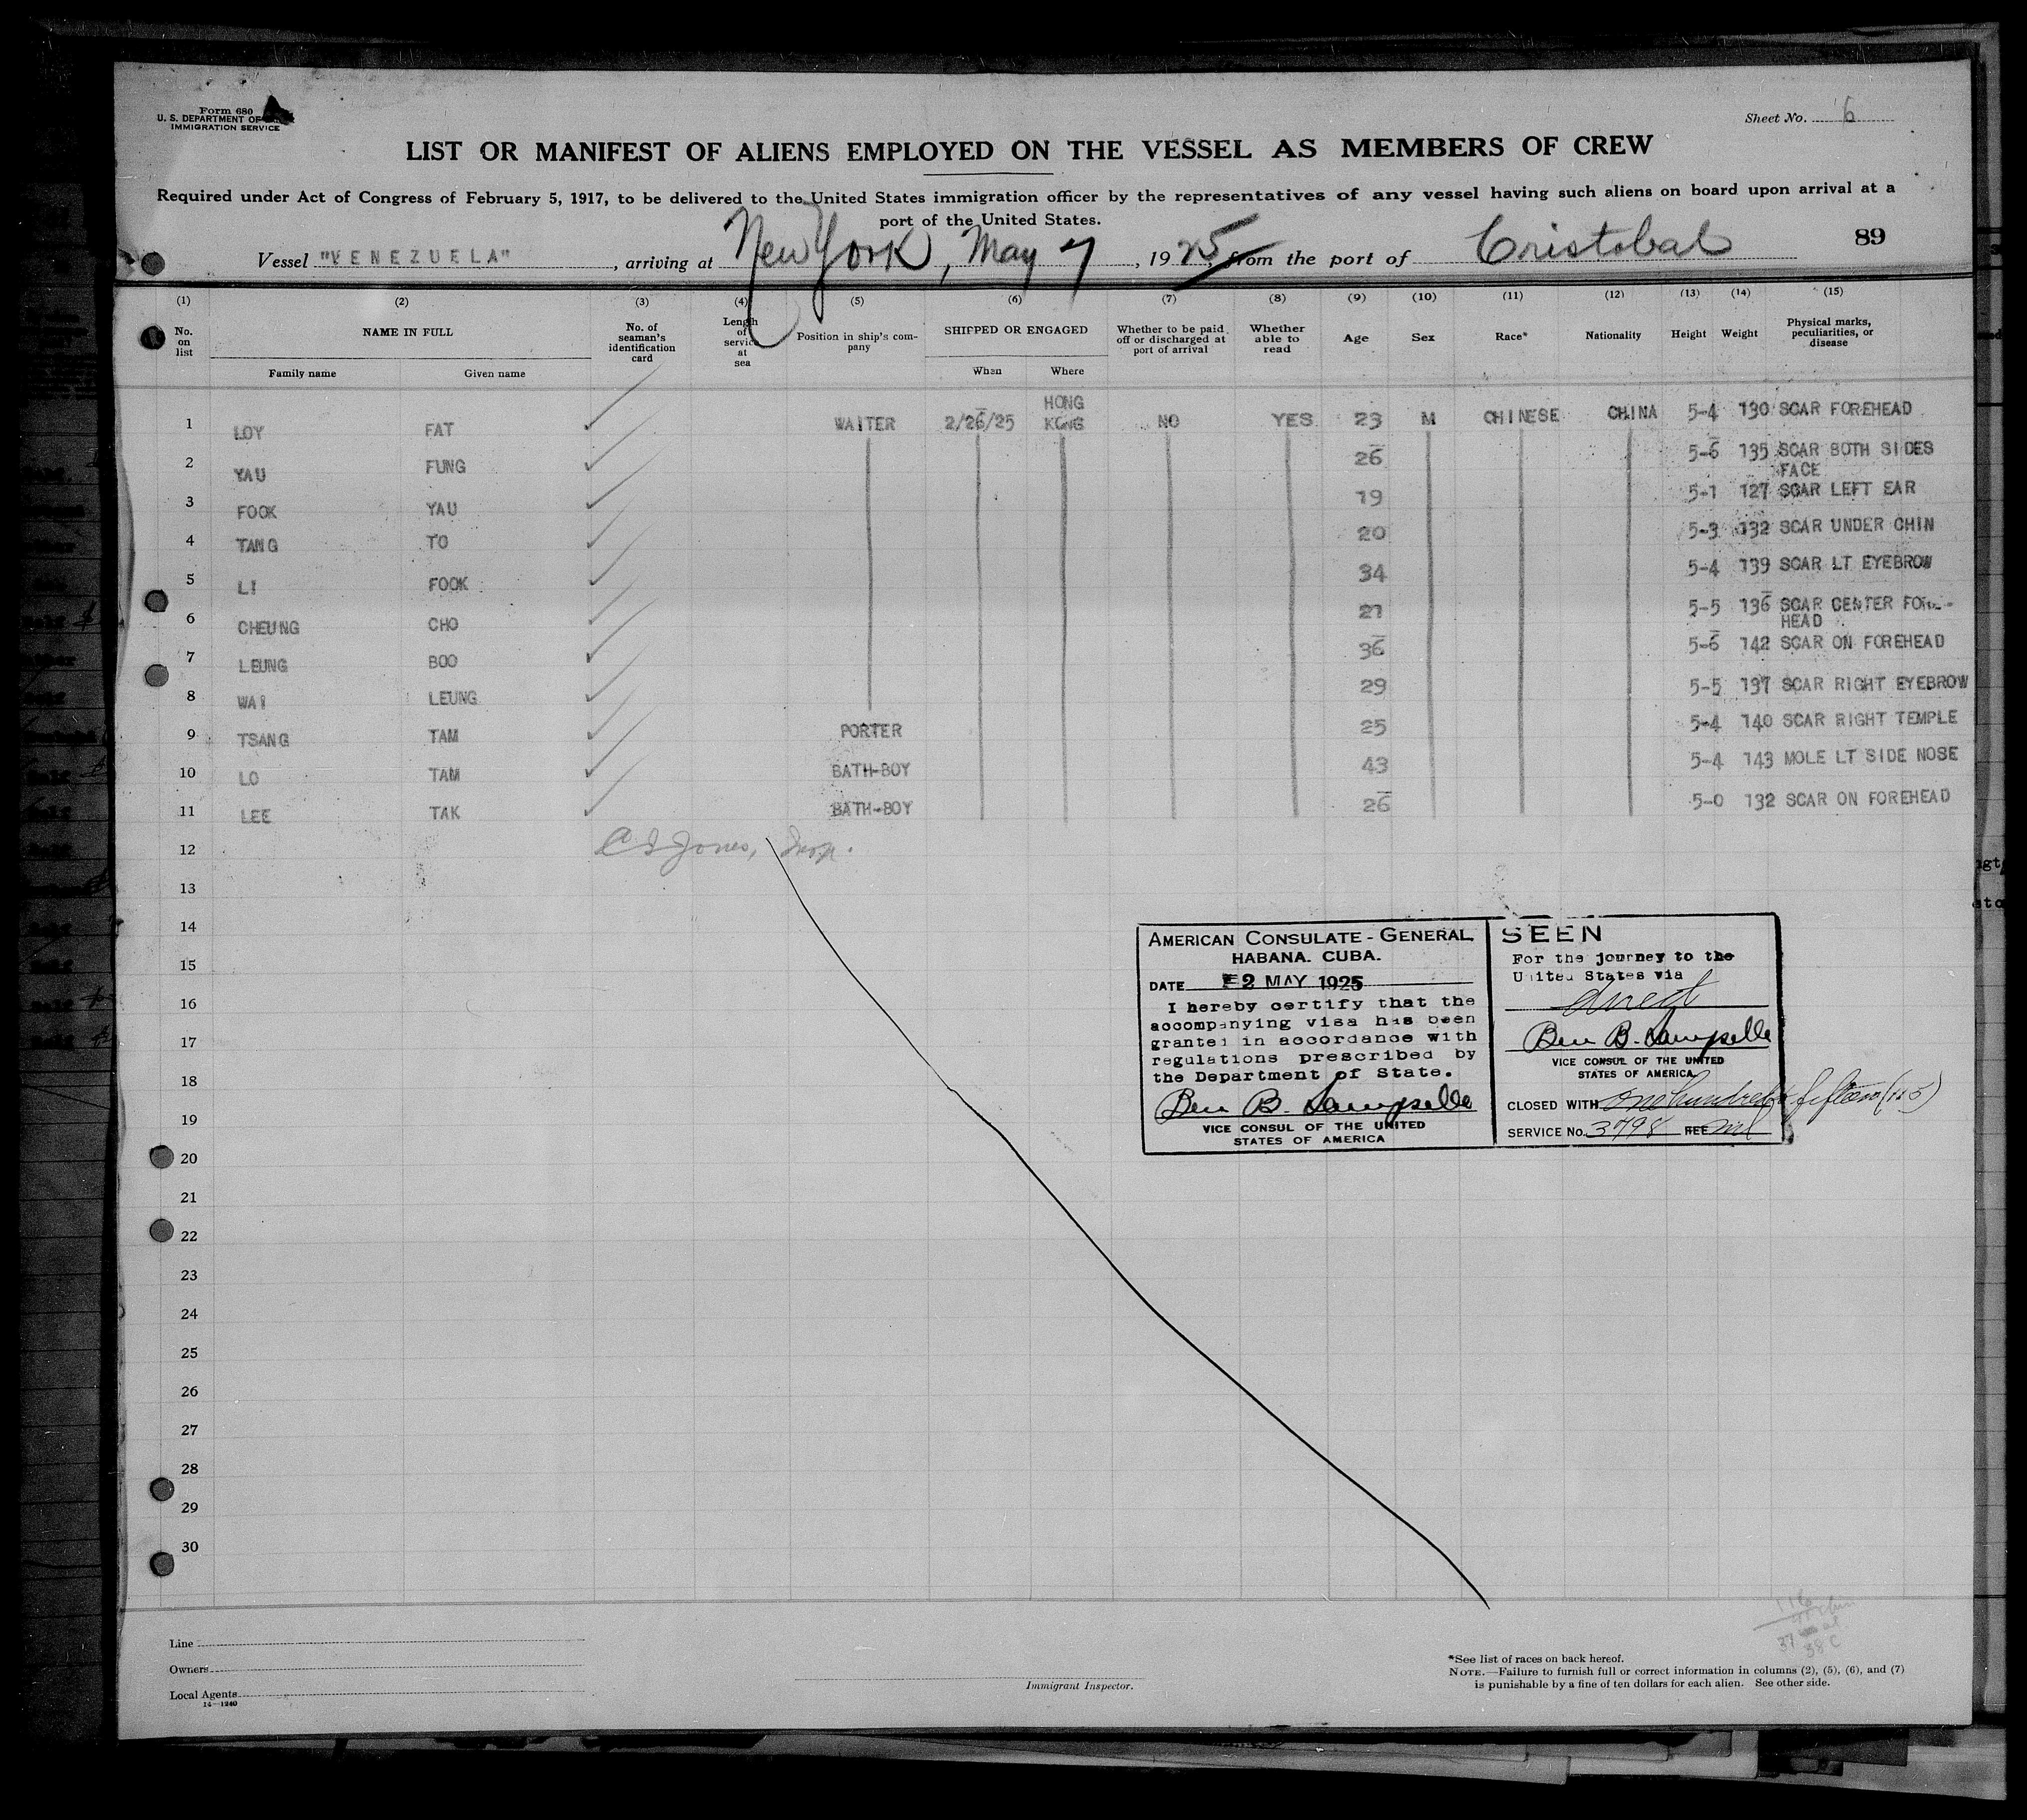 Form 680
U. S. DEPARTMENT OF
IMMIGRATION SERVICE
Sheet No. 6
LIST OR MANIFEST OF ALIENS EMPLOYED ON THE VESSEL AS MEMBERS OF CREW
Required under Act of Congress of February 5, 1917, to be delivered to the United States immigration officer by the representatives of any vessel having such aliens on board upon arrival at a
port of the United States.
89
Vessel "VENEZUELA", arriving at New York, May 7, 1925, from the port of Cristobal
(1) (2) (3) (4) (5) (6) (7) (8) (9) (10) (11) (12) (13) (14) (15)
No. on list NAME IN FULL Family name Given name No. of seaman's identification card Length of service at sea Position in ship's company SHIPPED OR ENGAGED When Where Whether to be paid off or discharged at port of arrival Whether able to read Age Sex Race* Nationality Height Weight Physical marks, peculiarities, or disease
1 LOY FAT WAITER 2/26/25 HONG KONG NO YES 23 M CHINESE CHINA 5-4 130 SCAR FOREHEAD
2 YAU FUNG 26 5-6 135 SCAR BOTH SIDES FACE
3 FOOK YAU 19 5-1 127 SCAR LEFT EAR
4 TANG TO 20 5-3 132 SCAR UNDER CHIN
5 LI FOOK 34 5-4 139 SCAR LT EYEBROW
6 CHEUNG CHO 21 5-5 136 SCAR CENTER FORE-HEAD
7 LEUNG BOO 36 5-6 142 SCAR ON FOREHEAD
8 WAI LEUNG 29 5-5 137 SCAR RIGHT EYEBROW
9 TSANG TAM PORTER 25 5-4 140 SCAR RIGHT TEMPLE
10 LO TAM BATH-BOY 43 5-4 143 MOLE LT SIDE NOSE
11 LEE TAK BATH-BOY 26 5-0 132 SCAR ON FOREHEAD
12 Jones, Insp.
13
14
15
16
17
18
19
20
21
22
23
24
25
26
27
28
29
30
AMERICAN CONSULATE-GENERAL
HABANA. CUBA.
DATE 2 MAY 1925
I hereby certify that the
accompanying visa has been
granted in accordance with
regulations prescribed by
the Department of State.
Ben B.
VICE CONSUL OF THE UNITED
STATES OF AMERICA
SEEN
For the journey to the
United States via
direct
Ben B.
VICE CONSUL OF THE UNITED
STATES OF AMERICA
CLOSED WITH one hundred & fifteen (115)
SERVICE No. 3798 FEE nil
116
Line
Owners
Local Agents
14—1240
Immigrant Inspector.
*See list of races on back hereof.
NOTE.—Failure to furnish full or correct information in columns (2), (5), (6), and (7)
is punishable by a fine of ten dollars for each alien. See other side.